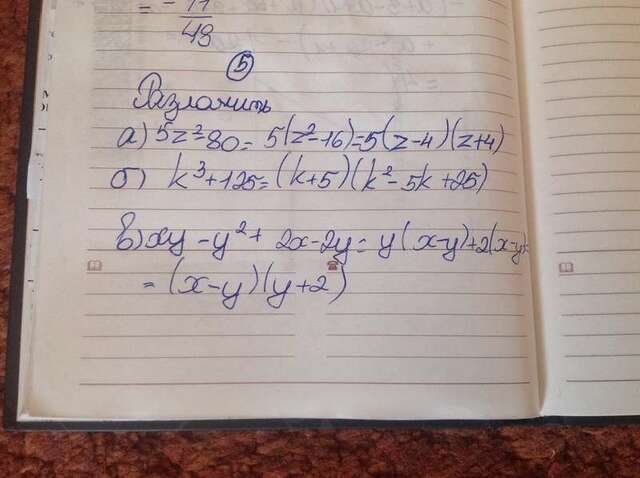 = - 11/48
5
Разложить
а) 5z²-80 = 5(z²-16)=5(z-4)(z+4)
б) k³+125=(k+5)(k²-5k+25)
в) xy-y²+2x-2y= y(x-y)+2(x-y)=
= (x-y)(y+2)